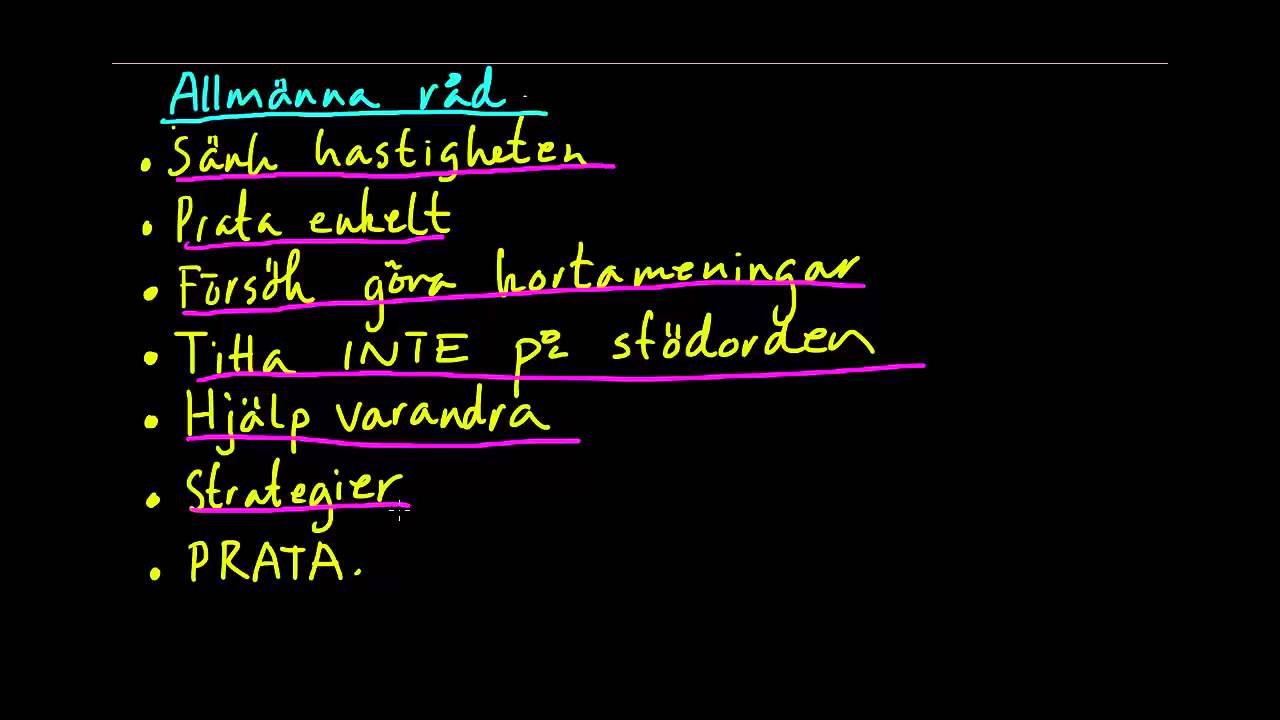 Allmänna råd.
• Sänk hastigheten
• Prata enkelt
• Försök göra korta meningar
• Titta INTE på stödorden
• Hjälp varandra
• Strategier
• PRATA.